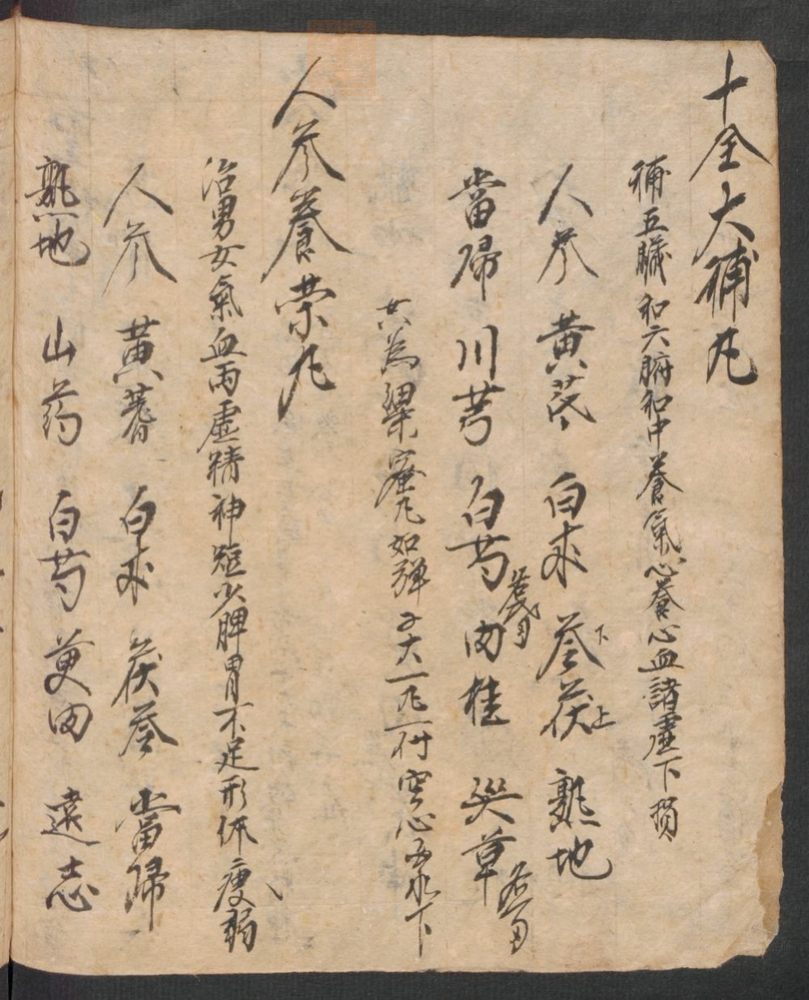 十全大補凡
補五臟和六腑和中養氣心養心血諸虛下損
人參 黃芪 白朮 苓茯 熟地
下 上
當帰 川芎 白芍 肉桂 草
共為 蜜凡如弹子大一凡一付空心 水下
人參養荣凡
治男女氣血両虛精神短少脾胃不足形 瘦弱
人參 黃蓍 白朮 茯苓 當歸
熟地 山药 白芍 萸肉 遠志